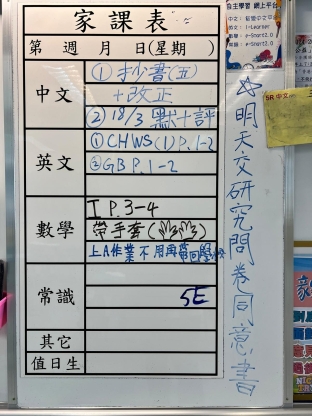 家課表
第 週 月 日(星期 )
中文
①抄書(五)
+改正
②18/3 默+評
英文
①CHWS(1)P.1-2
②GB P.1-2
數學
I P.3-4
帶手套()
上A作業不用再帶回學校
常識
5E
其它
值日生
☆明天交研究問卷同意書
自主學習 網上平台
5R 中文